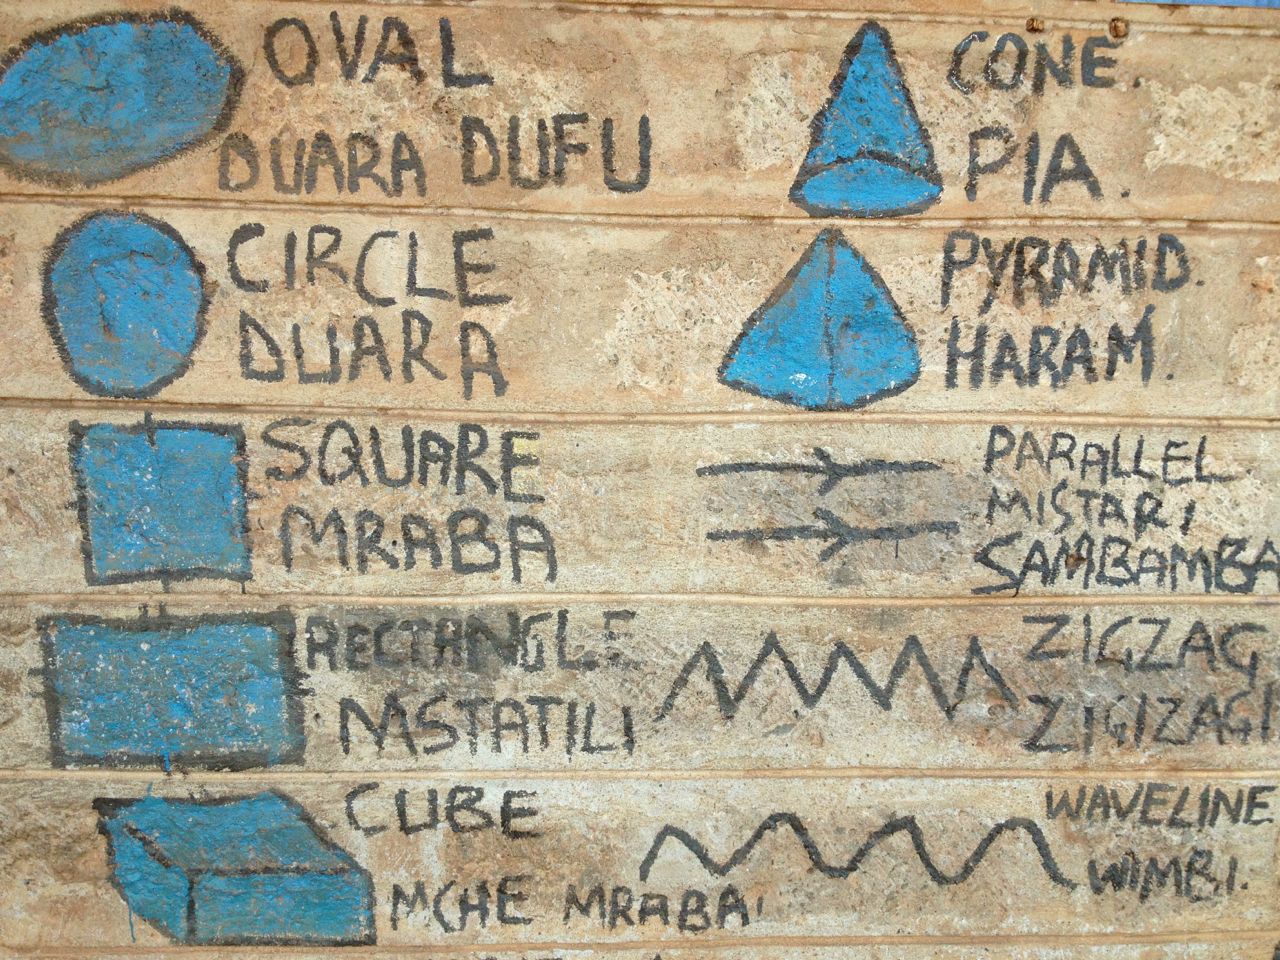 OVAL
DUARA DUFU
CIRCLE
DUARA
SQUARE
MRABA
RECTANGLE
MSTATILI
CUBE
MCHE MRABA
CONE.
PIA.
PYRAMID.
HARAM.
PARALLEL
MISTARI
SAMBAMBA
ZIGZAG
ZIGIZAGI
WAVELINE
WIMBI.